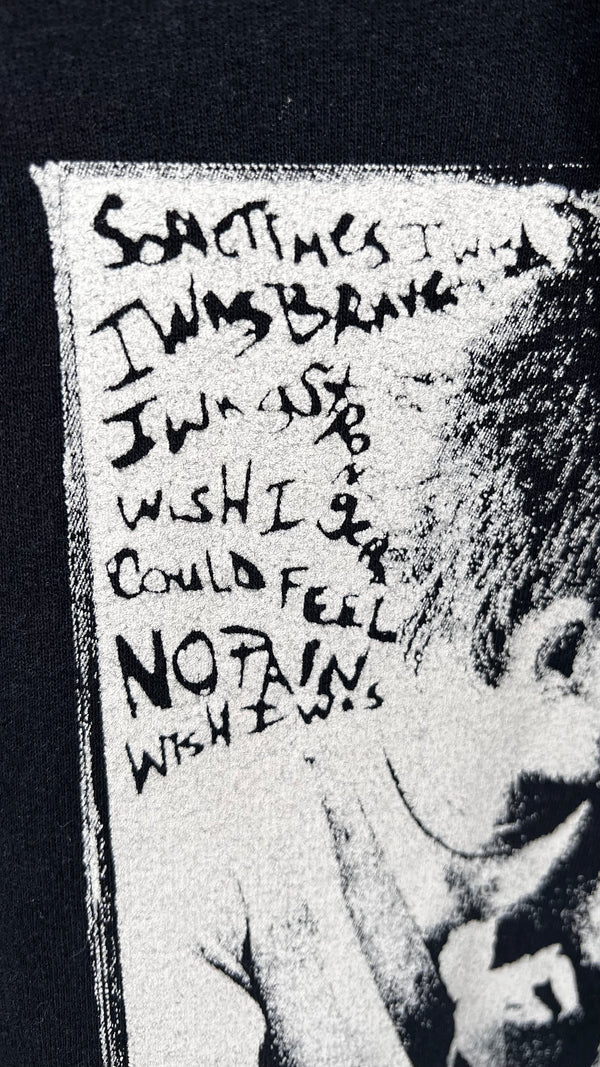 SOMETIMES I
I WAS BRAVE
I WAS STRONGER
WISH I
COULD FEEL
NO PAIN
WISH I WAS